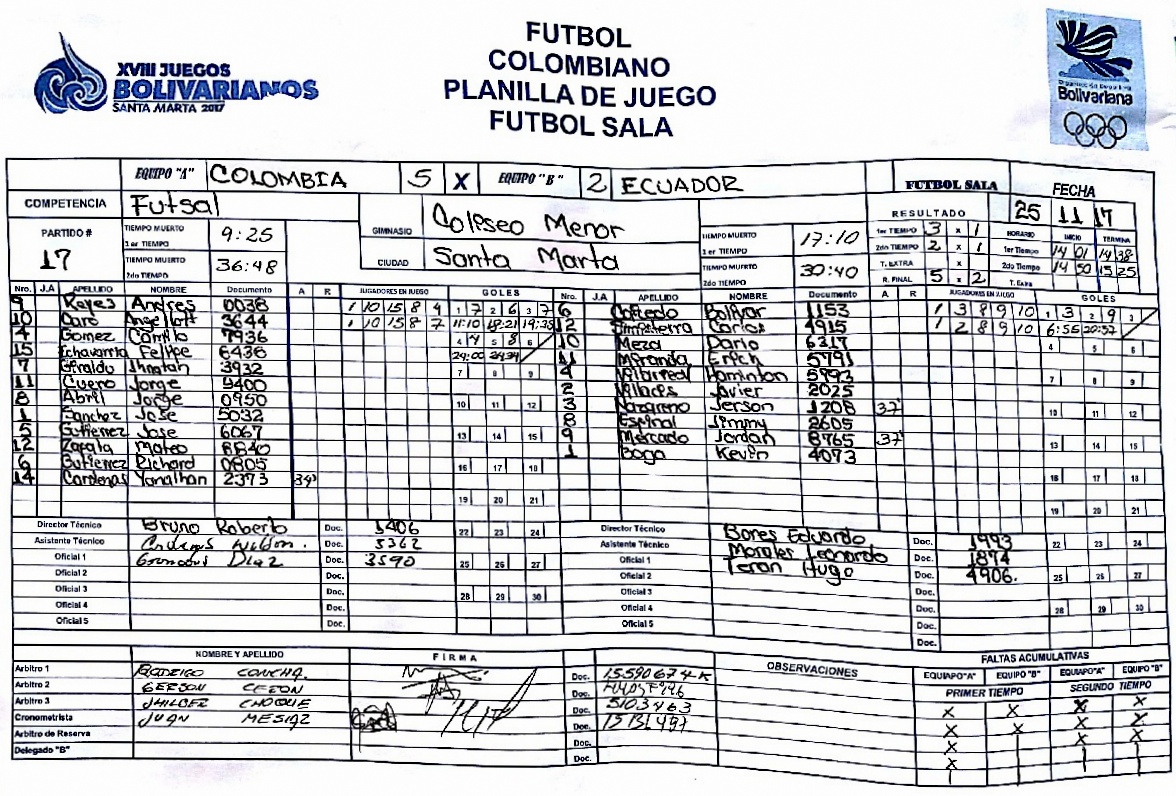 FUTBOL
COLOMBIANO
PLANILLA DE JUEGO
FUTBOL SALA
XVIII JUEGOS
BOLIVARIANOS
SANTA MARTA 2017
Organización Deportiva
Bolivariana
EQUIPO "A" COLOMBIA 5 X EQUIPO "B" 2 ECUADOR FUTBOL SALA FECHA
COMPETENCIA Futsal GIMNASIO Coliseo Menor RESULTADO 25 11 17
PARTIDO # 17 CIUDAD Santa Marta
TIEMPO MUERTO 1er TIEMPO 9:25 TIEMPO MUERTO 1er TIEMPO 17:10
TIEMPO MUERTO 2do TIEMPO 36:48 TIEMPO MUERTO 2do TIEMPO 30:40
1er TIEMPO 3 x 1 HORARIO INICIO TERMINA
2do TIEMPO 2 x 1 1er Tiempo 14 01 14 38
T. EXTRA x 2do Tiempo 14 50 15 25
R. FINAL 5 x 2 T. Extra
Nro. J.A APELLIDO NOMBRE Documento A R JUGADORES EN JUEGO GOLES
9 Reyes Andres 0038 1 10 15 8 4 1 7 2 6 3 7
10 Caro Angellott 3644 1 10 15 8 7 11:10 18:21 19:23
4 Gomez Camilo 7936 4 4 5 8 6
15 Echavarria Felipe 6436 24:00
7 Giraldo Jhnatan 3932 7 8 9
11 Cuero Jorge 9400
8 Abril Jorge 0950 10 11 12
1 Sanchez Jose 5032
5 Gutierrez Jose 6067 13 14 15
12 Zapata Mateo 8840
6 Gutierrez Richard 0805 16 17 18
14 Cardenas Yonathan 2373 39'
19 20 21
Nro. J.A APELLIDO NOMBRE Documento A R JUGADORES EN JUEGO GOLES
6 Bolivar 1153 1 3 8 9 10 1 3 2 9 3
12 Carlos 4915 1 2 8 9 10 6:56 20:57
10 Meza Dario 6317 4 5 6
11 Miranda Erich 5791
4 Villarreal Haminton 5993 7 8 9
2 Javier 2025
3 Nazareno Jerson 1208 37' 10 11 12
8 Espinal Jimmy 2605
9 Mercado Jordan 8765 37' 13 14 15
1 Boga Kevin 4073
16 17 18
19 20 21
Director Técnico Bruno Roberto Doc. 1406 22 23 24
Asistente Técnico Doc. 5362
Oficial 1 Diaz Doc. 3590 25 26 27
Oficial 2 Doc.
Oficial 3 Doc. 28 29 30
Oficial 4 Doc.
Oficial 5 Doc.
Director Técnico Bores Eduardo Doc. 1993 22 23 24
Asistente Técnico
Oficial 1 Morales Leonardo Doc. 1874
Oficial 2 Teran Hugo Doc. 4906. 25 26 27
Oficial 3 Doc.
Oficial 4 Doc. 28 29 30
Oficial 5 Doc.
Doc.
NOMBRE Y APELLIDO FIRMA OBSERVACIONES FALTAS ACUMULATIVAS
EQUIAPO"A" EQUIPO "B" EQUIAPO"A" EQUIPO "B"
PRIMER TIEMPO SEGUNDO TIEMPO
Arbitro 1 RODRIGO CONCHA Doc. 15590674-K
Arbitro 2 GERSON Doc.
Arbitro 3 JHILBER CHOQUE Doc. 5103463
Cronometrista JUAN MESIAZ Doc.
Arbitro de Reserva Doc.
Delegado "B" Doc.
X X X X
X X X X
X X X
X